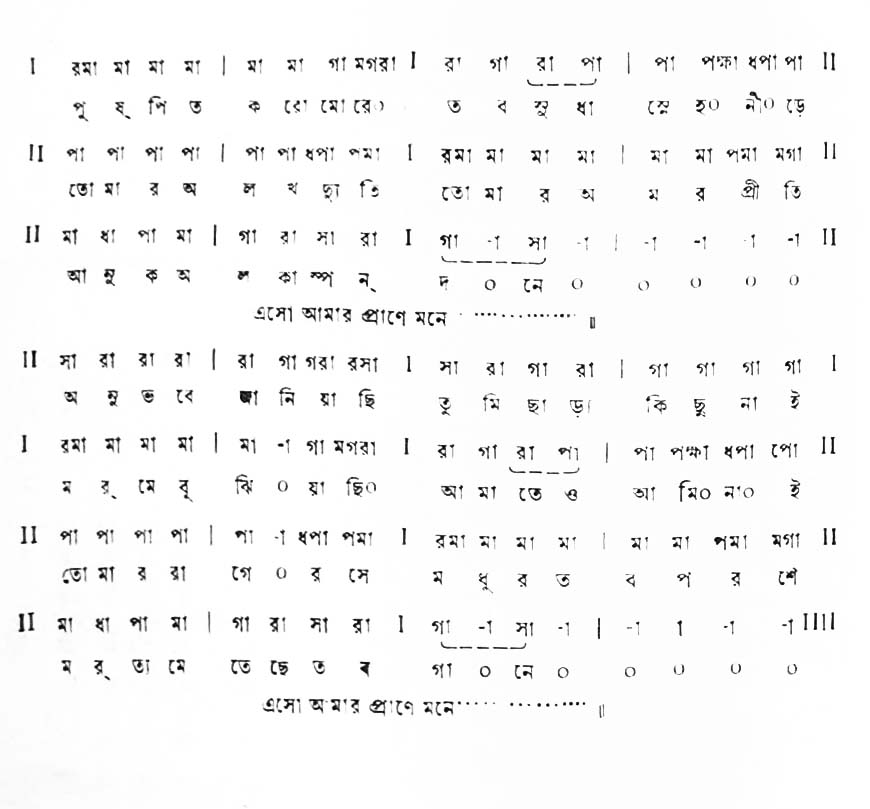 I রমা মা মা মা | মা মা গা মগরা I রা গা রা পা | পা পক্ষা ধপা পা II
পু ষ্ পি ত ক রো মো রে০ ত ব সু ধা স্নে হ০ নী০ ড়ে
II পা পা পা পা | পা পা ধপা পমা I রমা মা মা মা | মা মা পমা মগা II
তো মা র অ ল খ দ্যু তি তো মা র অ ম র প্রী তি
II মা ধা পা মা | গা রা সা রা I গা -া সা -া | -া -া -া -া II
আ মু ক অ ল কা স্প ন্ দ ০ নে ০ ০ ০ ০ ০
এসো আমার প্রাণে মনে ................ ॥
II সা রা রা রা | রা গা গরা রসা I সা রা গা রা | গা গা গা গা I
অ নু ভ বে জা নি য়া ছি তু মি ছা ড়া কি ছু না ই
I রমা মা মা মা | মা -া গা মগরা I রা গা রা পা | পা পক্ষা ধপা পো II
ম র্ মে বু ঝি ০ য়া ছি০ আ মা তে ও আ মি০ না০ ই
II পা পা পা পা | পা -া ধপা পমা I রমা মা মা মা | মা মা পমা মগা II
তো মা র রা গে ০ র সে ম ধু র ত ব প র শে
II মা ধা পা মা | গা রা সা রা I গা -া সা -া | -া া -া -া IIII
ম র্ তা মে তে ছে ত ব গা ০ নে ০ ০ ০ ০ ০
এসো আমার প্রাণে মনে................ ॥